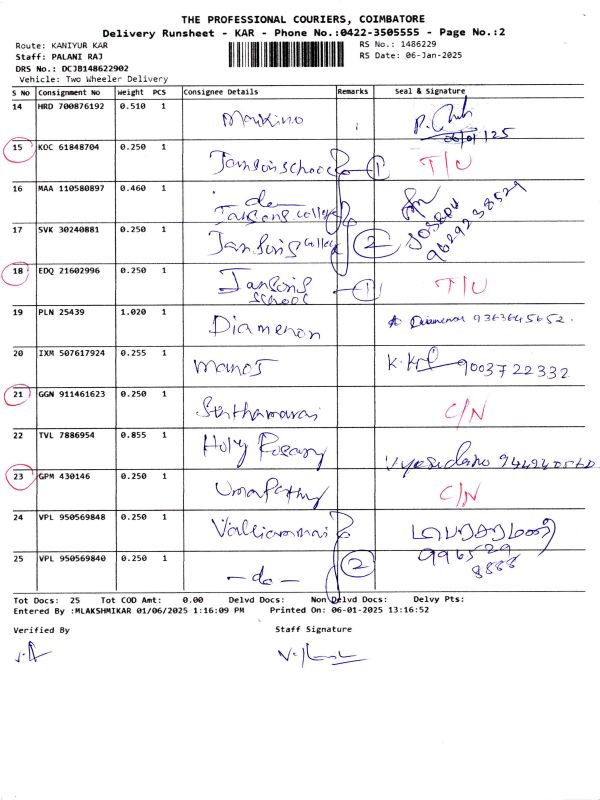 THE PROFESSIONAL COURIERS, COIMBATORE
Delivery Runsheet - KAR - Phone No.:0422-3505555 - Page No.:2
Route: KANIYUR KAR RS No.: 1486229
Staff: PALANI RAJ RS Date: 06-Jan-2025
DRS No.: DCJB148622902
Vehicle: Two Wheeler Delivery
S No Consignment No Weight PCS Consignee Details Remarks Seal & Signature
14 HRD 700876192 0.510 1
06/01/125
15 KOC 61848704 0.250 1 Jansonschool 1 T/U
16 MAA 110580897 0.460 1 do
Jansons college
17 SVK 30240881 0.250 1 Jansons college 2 9629238529
18 EDQ 21602996 0.250 1 Jansons school 1 T/U
19 PLN 25439 1.020 1 Diamenon Diamenon 9363645652.
20 IXM 507617924 0.255 1 Manoj 9003722332
21 GGN 911461623 0.250 1 Senthamarai C/N
22 TVL 7886954 0.855 1 Holy Rosary
23 GPM 430146 0.250 1 Umapathy C/N
24 VPL 950569848 0.250 1 Valliammai
25 VPL 950569840 0.250 1 - do - 2 996529
8888
Tot Docs: 25 Tot COD Amt: 0.00 Delvd Docs: Non Delvd Docs: Delvy Pts:
Entered By :MLAKSHMIKAR 01/06/2025 1:16:09 PM Printed On: 06-01-2025 13:16:52
Verified By Staff Signature